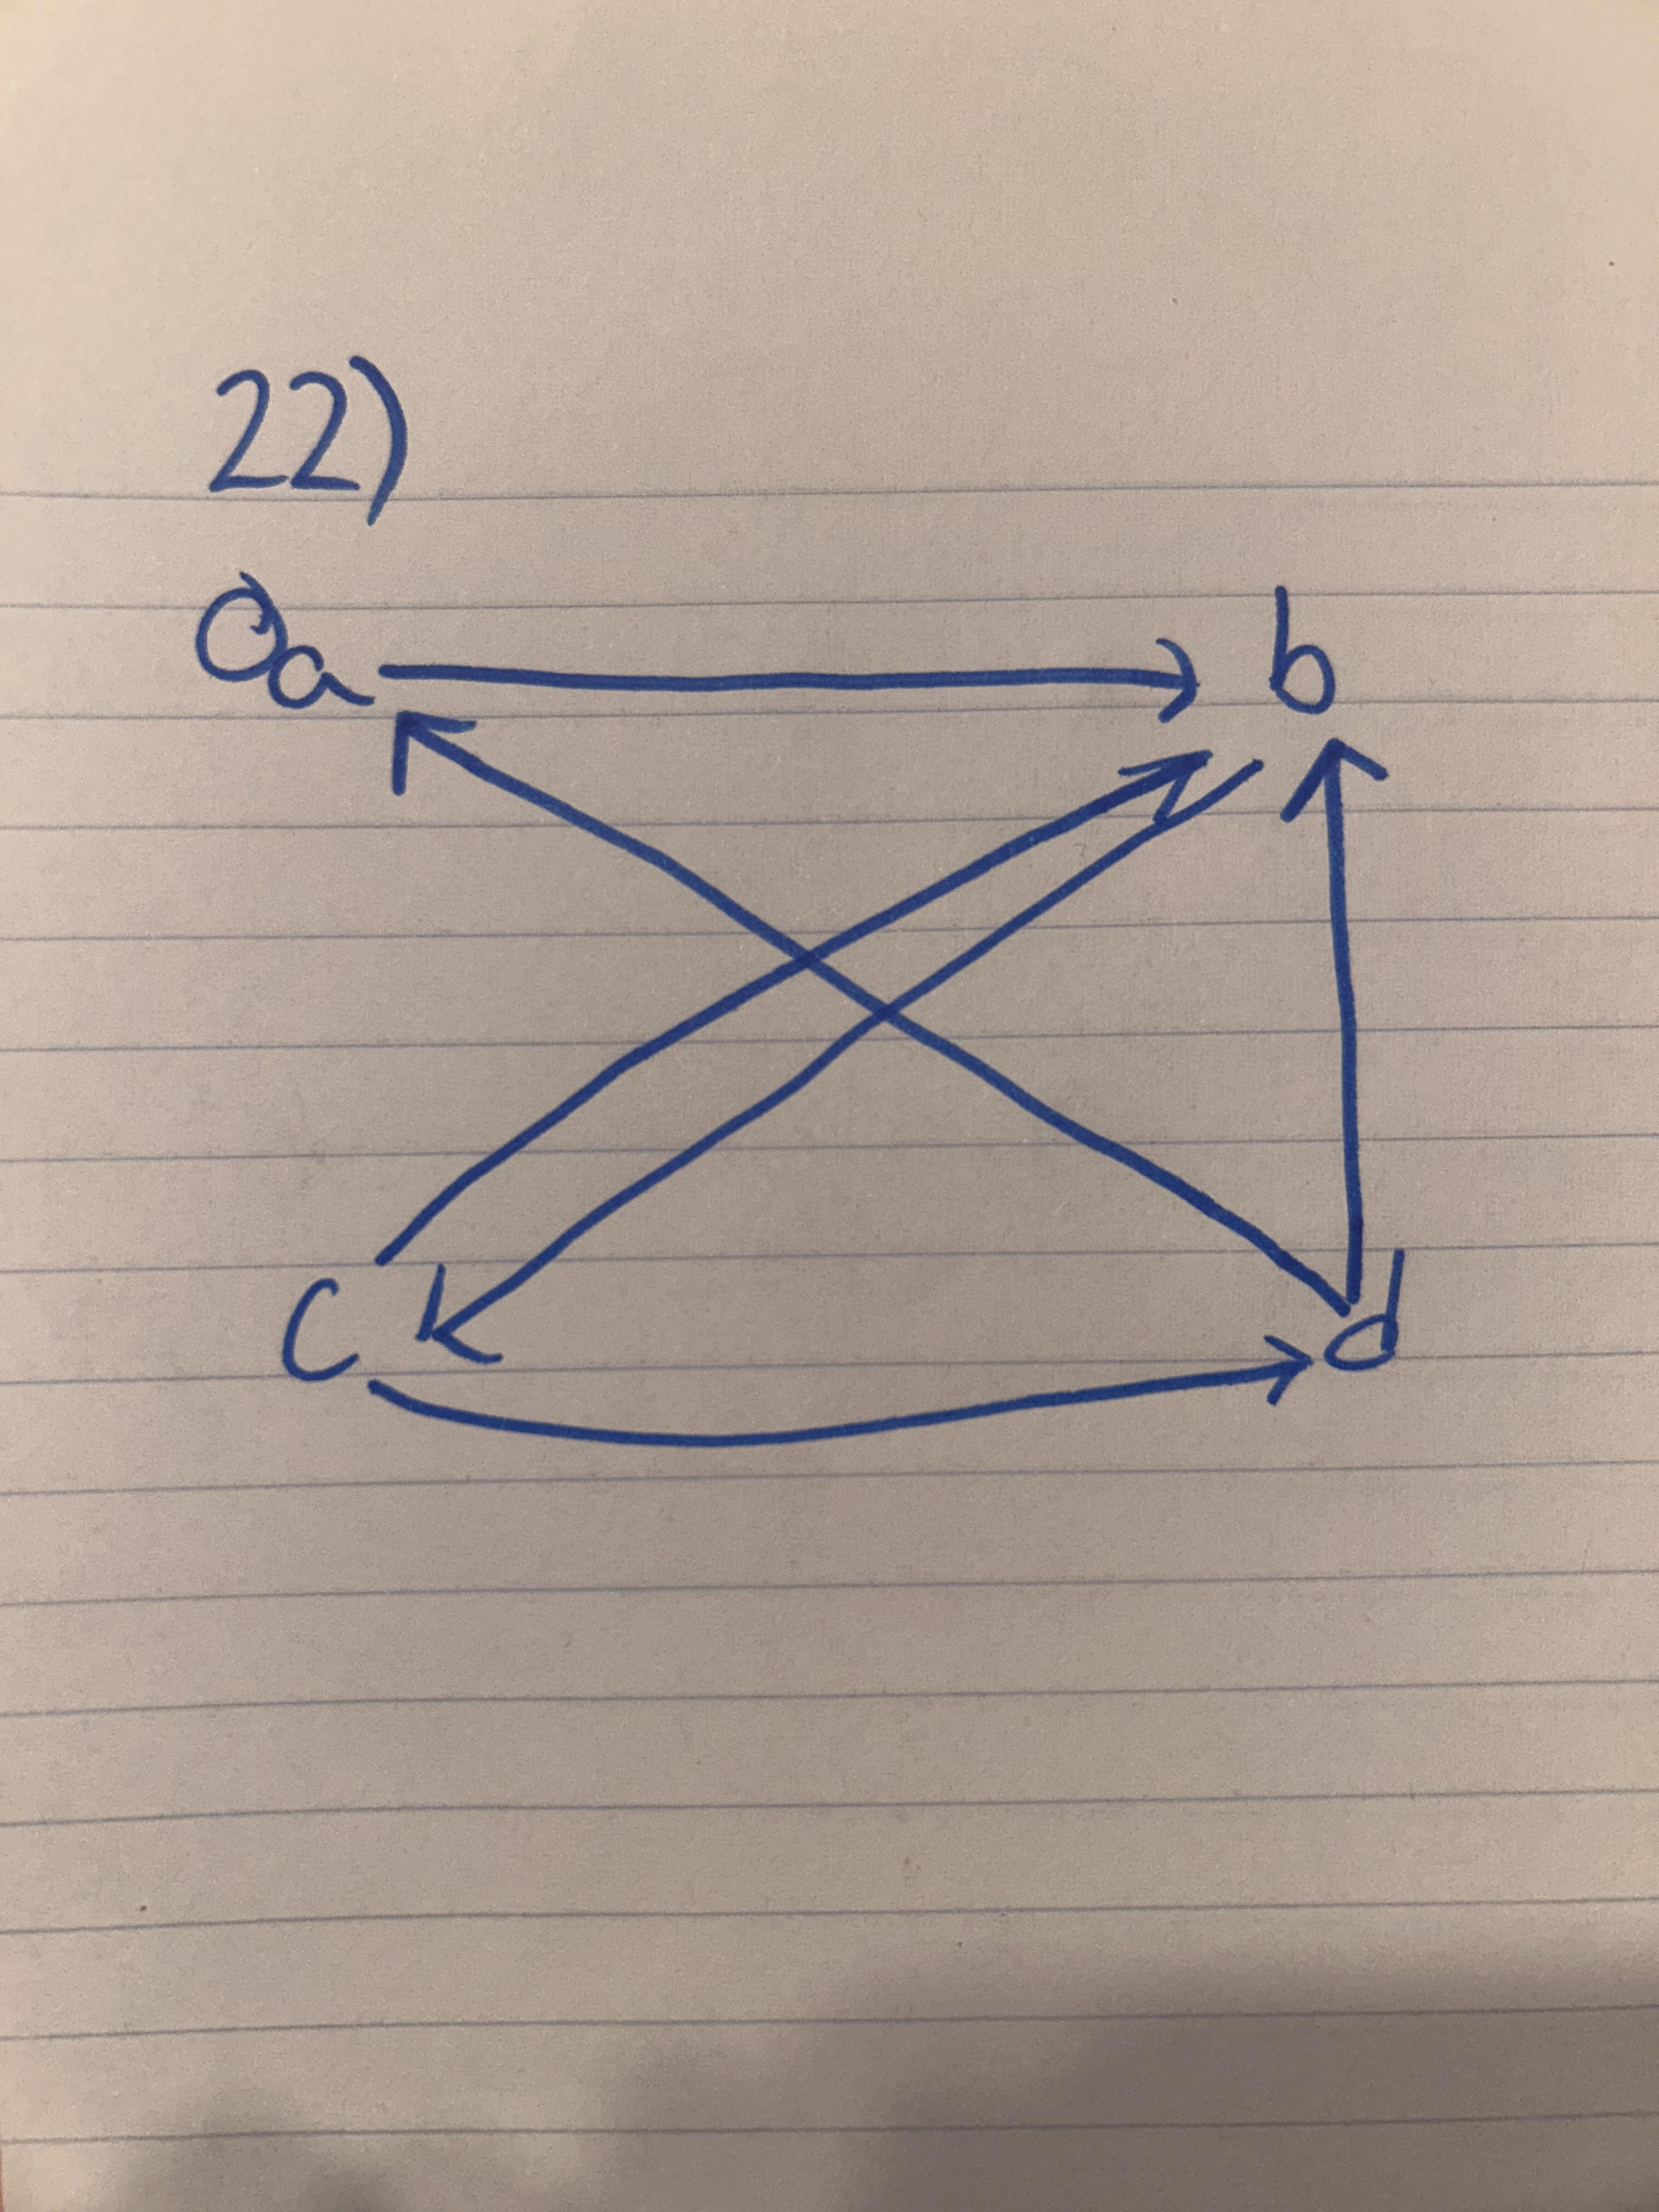 22)
a b
c d